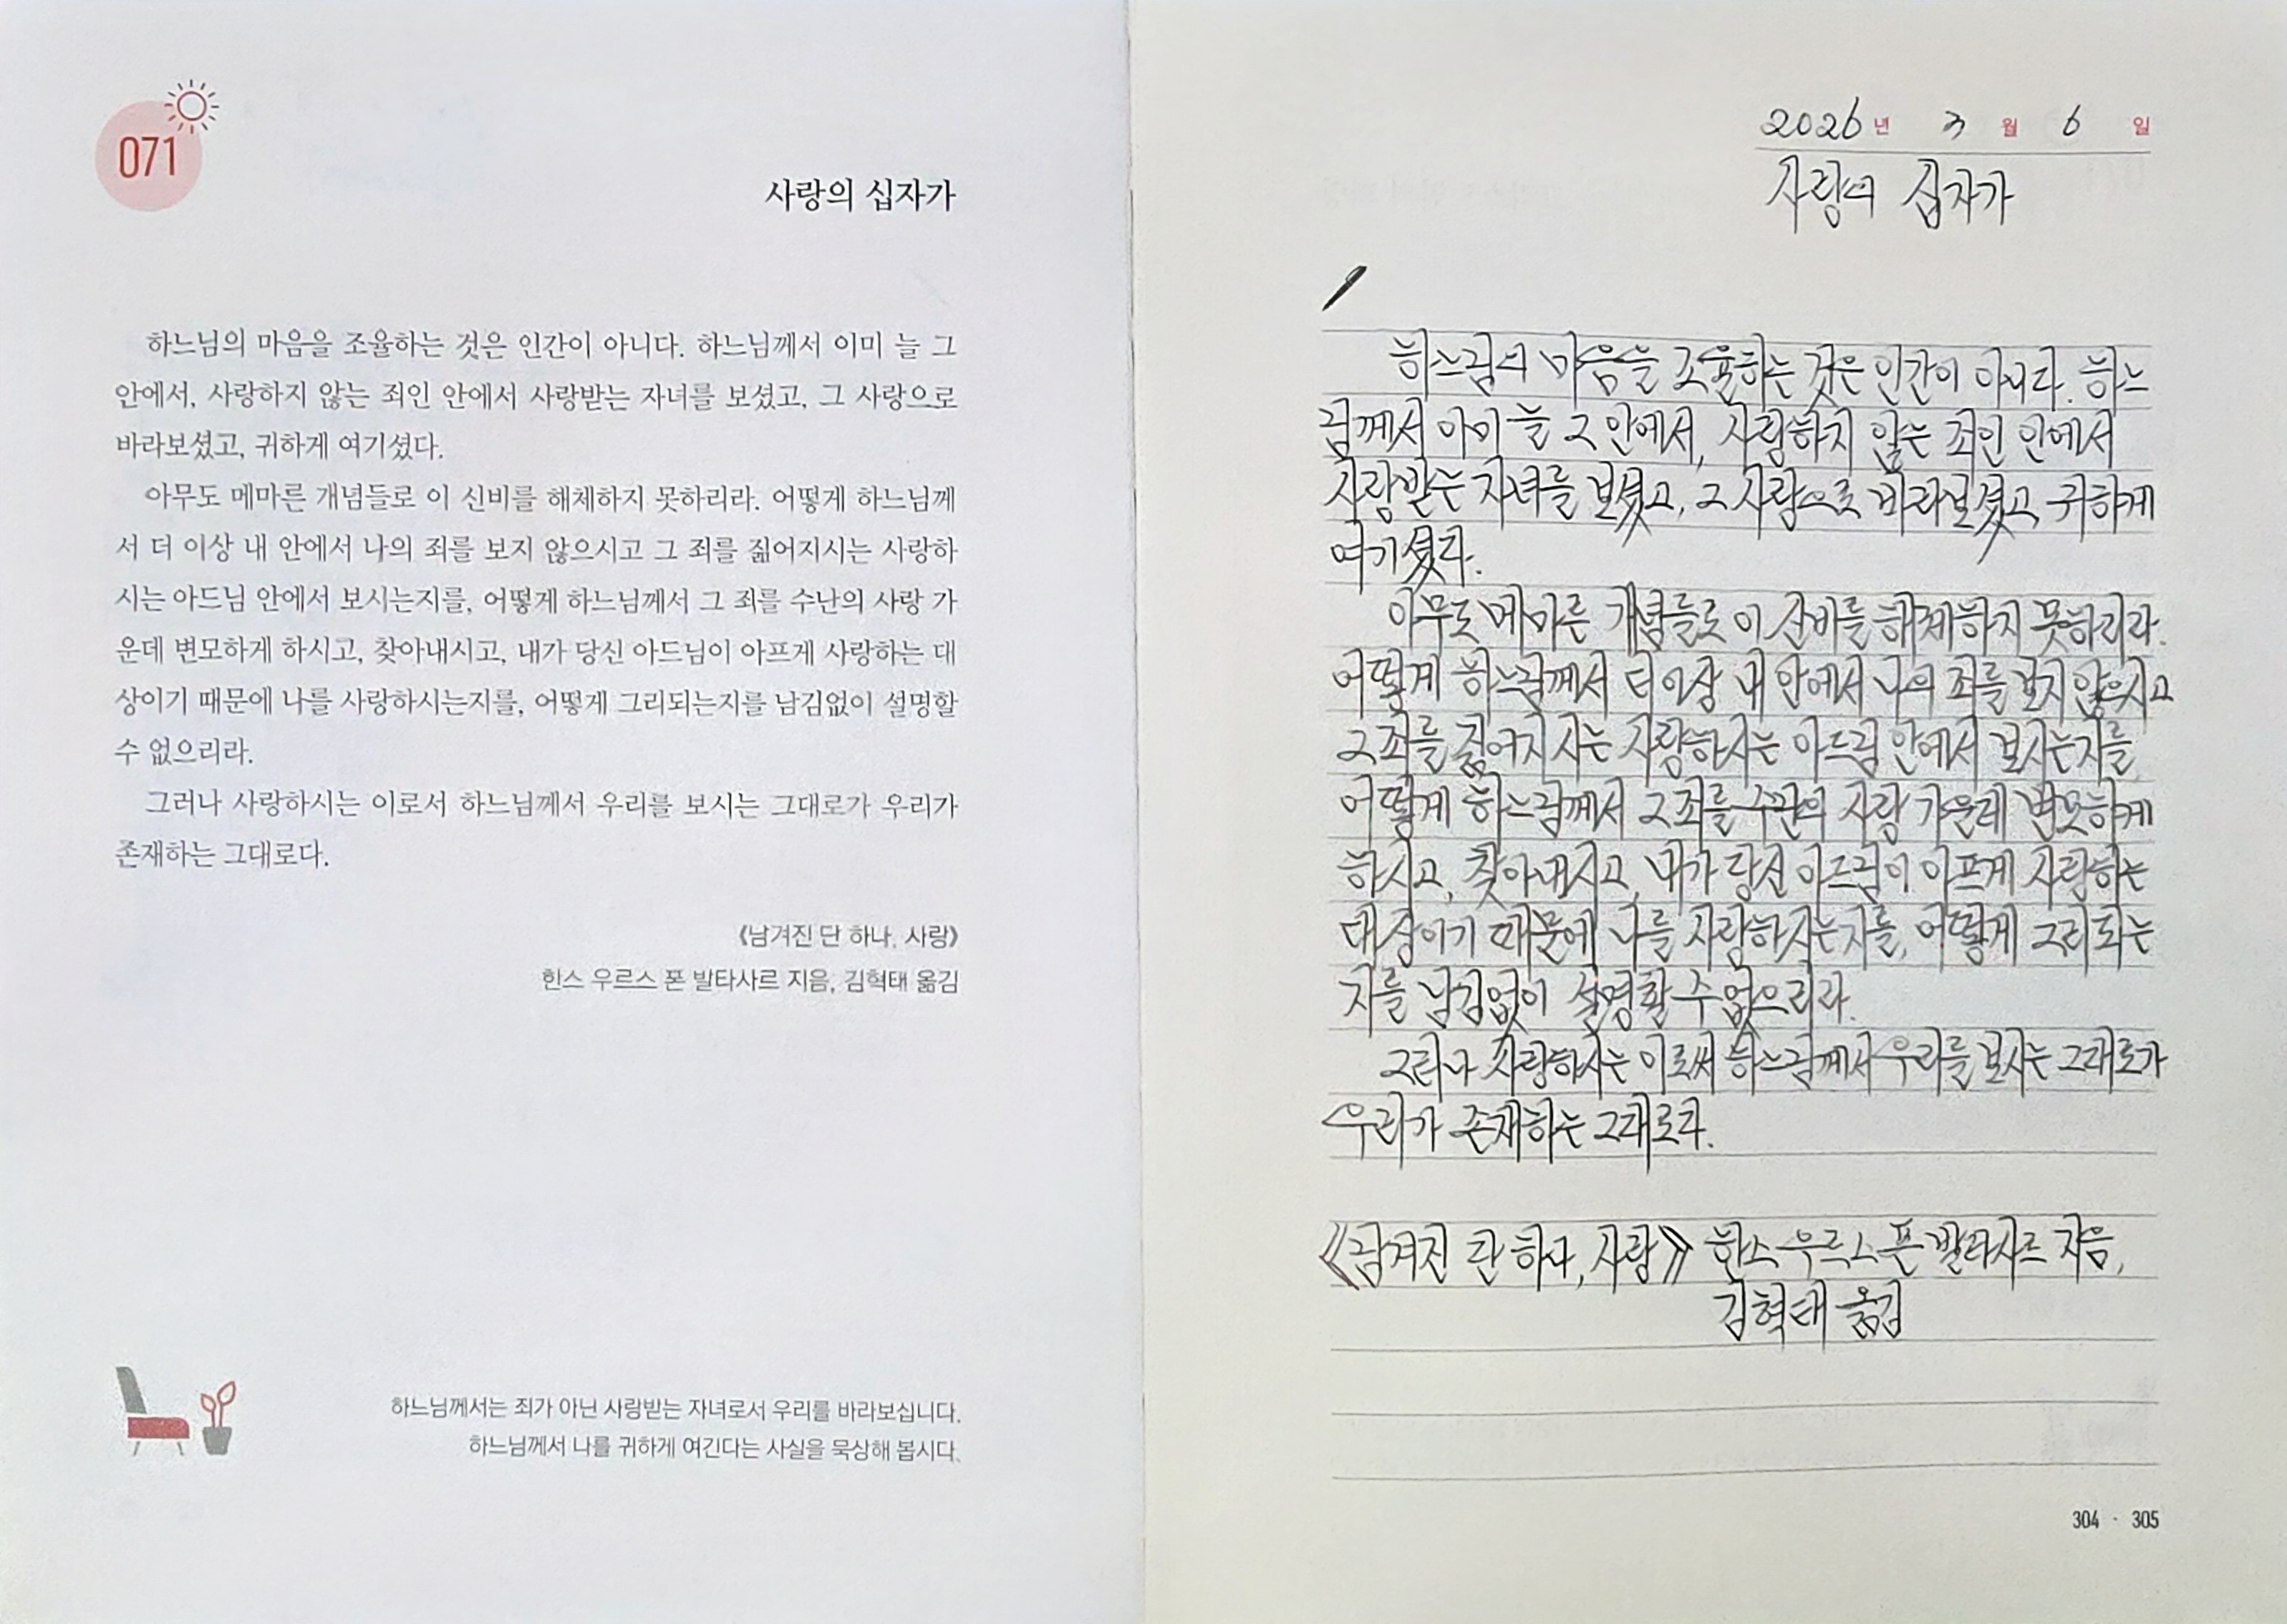 071
사랑의 십자가
하느님의 마음을 조율하는 것은 인간이 아니다. 하느님께서 이미 늘 그
안에서, 사랑하지 않는 죄인 안에서 사랑받는 자녀를 보셨고, 그 사랑으로
바라보셨고, 귀하게 여기셨다.
아무도 메마른 개념들로 이 신비를 해체하지 못하리라. 어떻게 하느님께
서 더 이상 내 안에서 나의 죄를 보지 않으시고 그 죄를 짊어지시는 사랑하
시는 아드님 안에서 보시는지를, 어떻게 하느님께서 그 죄를 수난의 사랑 가
운데 변모하게 하시고, 찾아내시고, 내가 당신 아드님이 아프게 사랑하는 대
상이기 때문에 나를 사랑하시는지를, 어떻게 그리되는지를 남김없이 설명할
수 없으리라.
그러나 사랑하시는 이로서 하느님께서 우리를 보시는 그대로가 우리가
존재하는 그대로다.
《남겨진 단 하나, 사랑》
한스 우르스 폰 발타사르 지음, 김혁태 옮김
하느님께서는 죄가 아닌 사랑받는 자녀로서 우리를 바라보십니다.
하느님께서 나를 귀하게 여긴다는 사실을 묵상해 봅시다.
2026년 3월 6일
사랑의 십자가
하느님의 마음을 조율하는 것은 인간이 아니다. 하느
님께서 이미 늘 그 안에서, 사랑하지 않는 죄인 안에서
사랑받는 자녀를 보셨고, 그 사랑으로 바라보셨고, 귀하게
여기셨다.
아무도 메마른 개념들로 이 신비를 해체하지 못하리라.
어떻게 하느님께서 더 이상 내 안에서 나의 죄를 보지 않으시고
그 죄를 짊어지시는 사랑하시는 아드님 안에서 보시는지를,
어떻게 하느님께서 그 죄를 수난의 사랑 가운데 변모하게
하시고, 찾아내시고, 내가 당신 아드님이 아프게 사랑하는
대상이기 때문에 나를 사랑하시는지를, 어떻게 그리되는
지를 남김없이 설명할 수 없으리라.
그러나 사랑하시는 이로써 하느님께서 우리를 보시는 그대로가
우리가 존재하는 그대로다.
《남겨진 단 하나, 사랑》 한스 우르스 폰 발타사르 지음,
김혁태 옮김
304 · 305